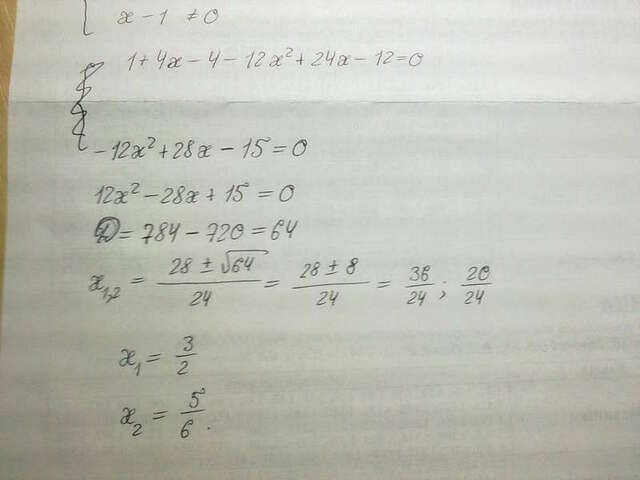 x - 1 ≠ 0
1 + 4x - 4 - 12x² + 24x - 12 = 0
-12x² + 28x - 15 = 0
12x² - 28x + 15 = 0
D = 784 - 720 = 64
x₁,₂ = (28 ± √64)/24 = (28 ± 8)/24 = 36/24 ; 20/24
x₁ = 3/2
x₂ = 5/6.